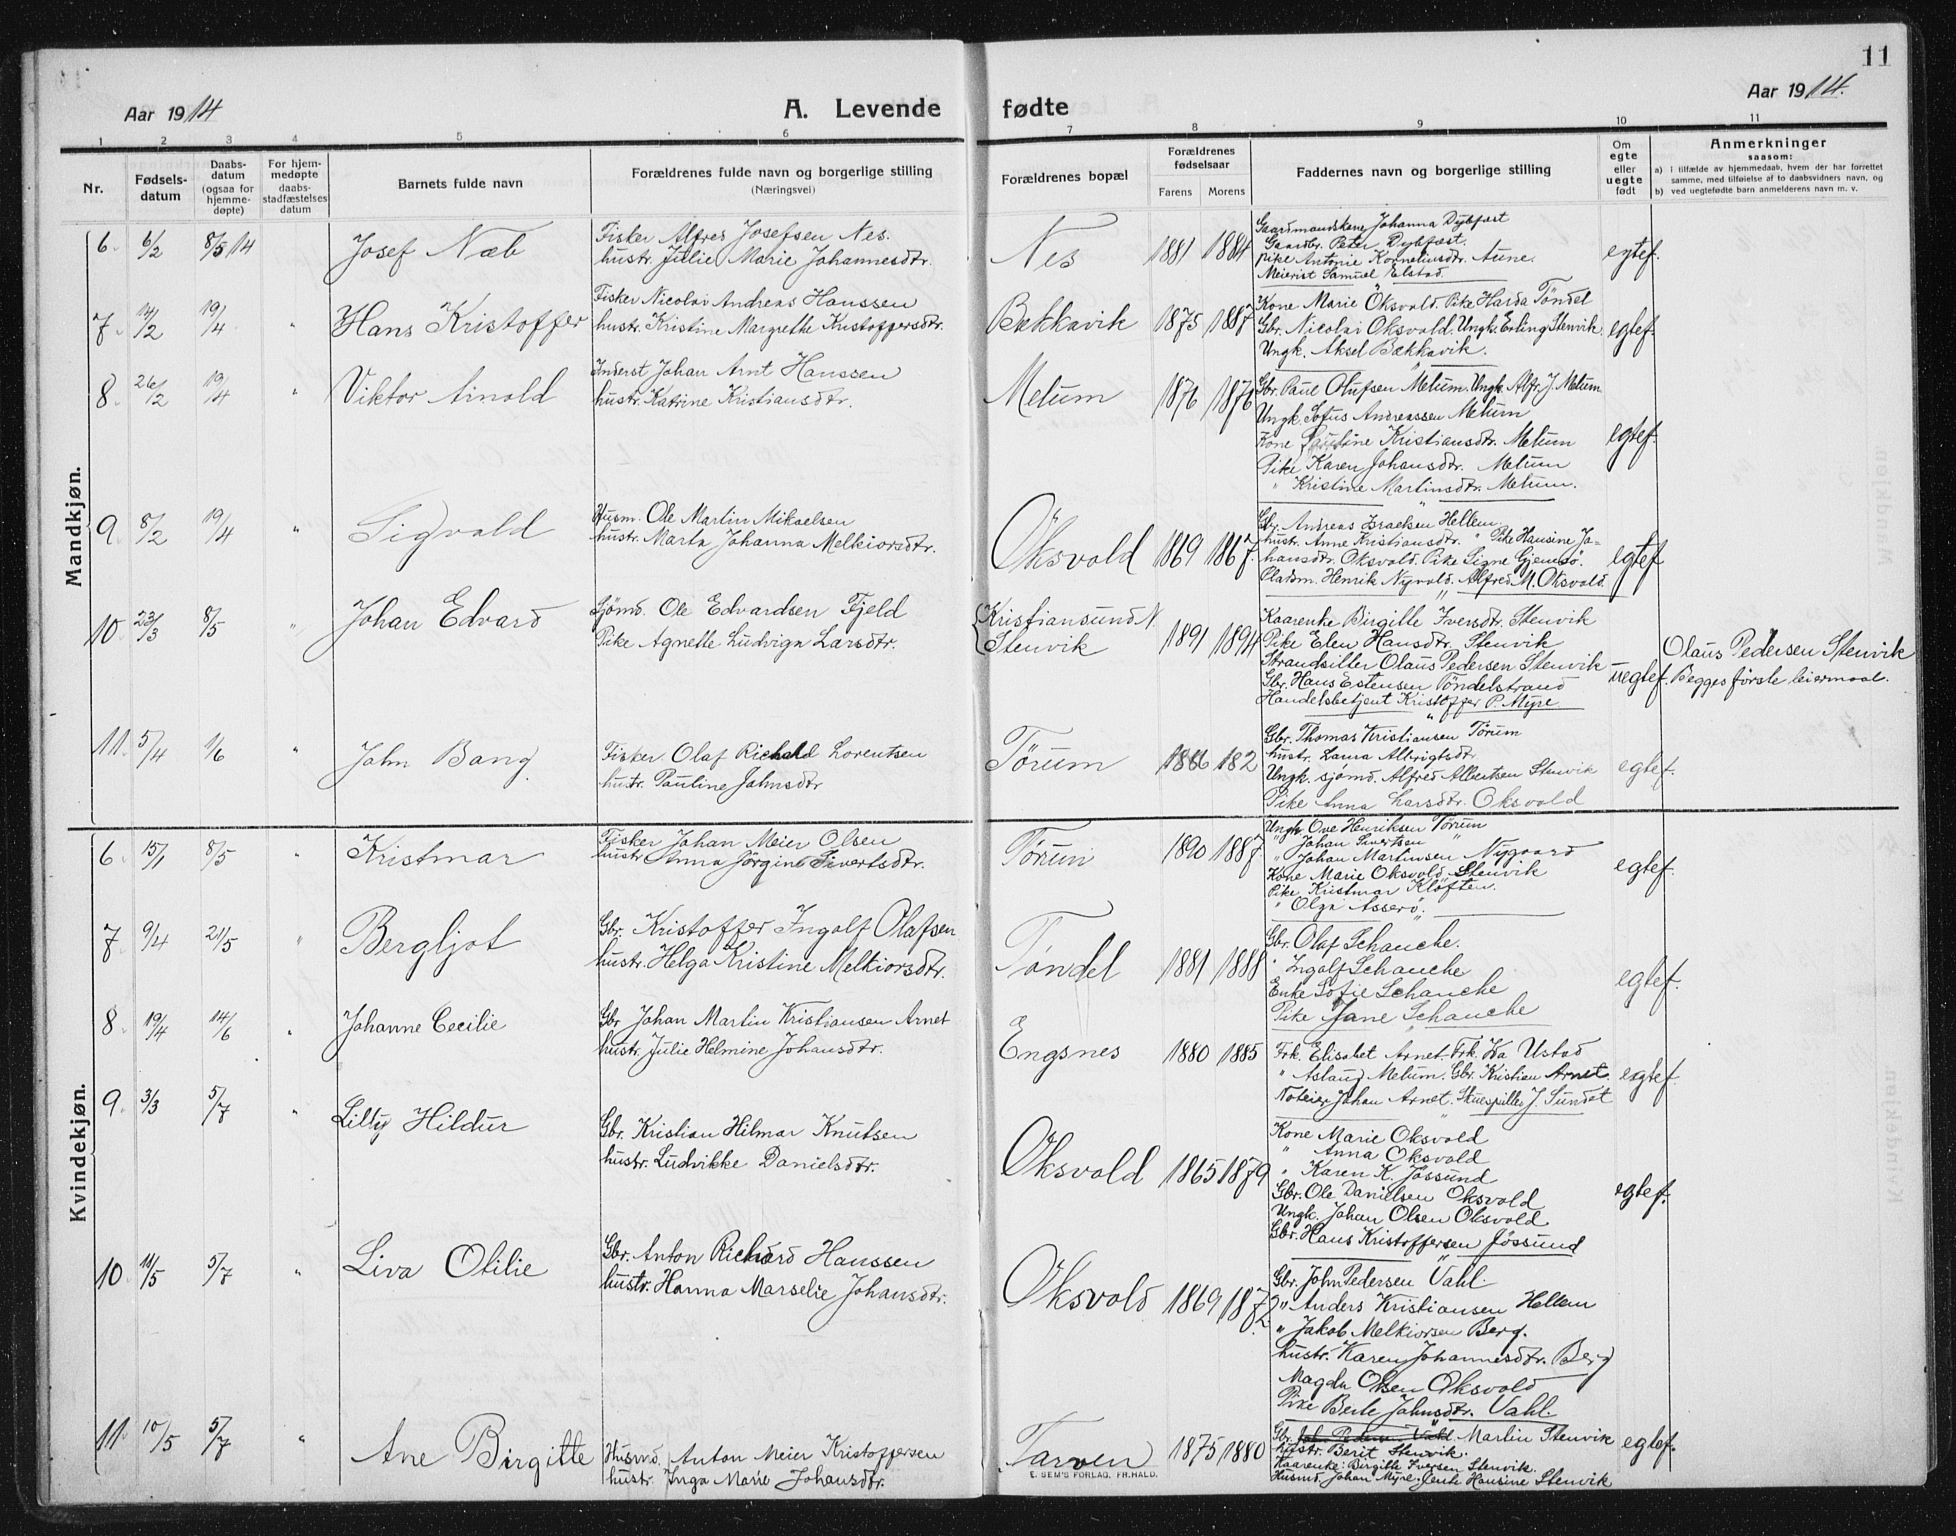 11
Aar 1914
A. Levende
fødte
Aar 1914.
1 2 3 4 5 6 7 8 9 10 11
Nr.
Fødsels-
datum
Daabs-
datum
(ogsaa for
hjemme-
døpte)
For hjem-
medøpte
daabs-
stadfæstelses
datum
Barnets fulde navn
Forældrenes fulde navn og borgerlige stilling
(Næringsvei)
Forældrenes bopæl
Forældrenes
fødselsaar
Farens Morens
Faddernes navn og borgerlige stilling
Om
egte
eller
uegte
født
Anmerkninger
saasom:
a) i tilfælde av hjemmedaab, hvem der har forrettet
samme, med tilføielse af to daabsvidners navn, og
b) ved uegtefødte barn anmelderens navn m. v.
Mandkjøn.
6. 6/2 8/5 14 Josef Næb
Fisker Alfred Josefsen Nes.
hustr. Julie Marie Johannesdtr.
Nes 1881 1884
Gaardmandskone Johanna Dybfæst
Gaardbr. Peter Dybfæst.
Pike Antonie Korneliusdtr. Aune.
Meierist Samuel Elstad.
egtef.
7. 14/2 19/4 " Hans Kristoffer
Fisker Nicolai Andreas Hanssen
hustr. Kristine Margrethe Kristoffersdtr.
Bækkavik 1875 1887
Kone Marie Oksvold. Pike Harda Töndel
Gbr. Nicolai Oksvold. Ungk. Erling Stenvik
Ungk. Aksel Bækkavik.
egtef.
8. 26/2 19/4 " Viktor Arnold
Inderst Johan Arnt Hanssen
hustr. Katrine Kristiansdtr.
Melum 1876 1876
Gbr. Paul Olufsen Melum. Ungk. Alfr. J. Melum
Ungk. Sofus Andreassen Melum
Kone Kristiansdtr. Melum
Pike Karen Johansdtr. Melum
" Kristine Martinsdtr. Melum.
egtef.
9. 8/2 19/4 " Sigvald
Husm. Ole Martin Mikaelsen
hustr. Marta Johanna Melkiorsdtr.
Oksvold 1869 1867.
Gbr. Andreas Israelsen Hellem
hustr. Anne Kristiansdtr. " Pike Hansine Jo-
hansdtr. Oksvold. Pike Signe Gjemsö.
Pladsm. Henrik Nyvold. Alfred M. Oksvold.
egtef
10. 23/3 8/5 " Johan Edvard
Sjömd. Ole Edvardsen Fjeld
Pike Agnette Ludviga Larsdtr.
Kristiansund N
Stenvik
1891 1894
Kaarenke Birgitte Iversdtr. Stenvik
Pike Elen Hansdtr. Stenvik
Strandsitter Olaus Pedersen Stenvik
Gbr. Hans Estensen Töndelstrand
Handelsbetjent Kristoffer P. Myre
uegtef.
Olaus Pedersen Stenvik
Begges første leiermaal.
11. 5/4 1/6 " John Bang
Fisker Olaf Richald Lorentsen
hustr. Pauline Johnsdtr
Tørum 1886 182
Gbr. Thomas Kristiansen Tørum
hustr. Laura Albrigtsdtr.
Ungk. sjömd. Alfred Albertsen Stenvik
Pike Anna Larsdtr. Oksvold
egtef.
Kvindekjøn.
6. 15/1 8/5 " Kristmar
Fisker Johan Meier Olsen
hustr. Anna Jörgine Sivertsdtr.
Tørum 1890 1887
Ungk. Ove Henriksen Tørum
" Johan Sivertsen "
" Johan Martinsen Nygaard
Kone Marie Oksvold Stenvik
Pike Kristmar Klöften.
" Olga Asserö.
egtef.
7. 9/4 21/5 " Bergljot
Gbr. Kristoffer Ingolf Olafsen
hustr. Helga Kristine Melkiorsdtr.
Tøndel 1881 1888
Gbr. Olaf Schanche.
" Ingolf Schanche
Enke Sofie Schanche
Pike Jane Schanche
egtef.
8. 19/4 14/6 " Johanne Cecilie
Gbr. Johan Martin Kristiansen Arnet
hustr. Julie Helmine Johansdtr.
Engsnes 1880 1885
Frk. Elisabet Arnet. Frk. Ida Ustad
" Aslaug Melum. Gbr. Kristian Arnet
Johan Arnet. Skuespiller J. Sundet
egtef.
9. 3/3 5/7 " Lilly Hildur
Gbr. Kristian Hilmar Knutsen
hustr. Ludvikke Danielsdtr.
Oksvold 1865 1879
Kone Marie Oksvold
" Anna Oksvold
" Karen K. Jøssund
Gbr. Ole Danielsen Oksvold
Ungk. Johan Olsen Oksvold
Gbr. Hans Kristoffersen Jössund
egtef.
10. 11/5 5/7 " Liva Otilie
Gbr. Anton Richard Hanssen
hustr. Hanna Marselie Johansdtr.
Oksvold 1869 1872.
Gbr. John Pedersen Vahl.
" Anders Kristiansen Hellem
" Jakob Melkiorsen Berg.
hustr. Karen Johannesdtr. Berg
Magda Olsen Oksvold
Pike Berte Johnsdtr. Vahl.
11. 10/5 5/7 " Ane Birgitte
Husmd. Anton Meier Kristoffersen
hustr. Inga Marie Johansdtr.
Tarven 1875 1880
Gbr. John Pedersen Vahl Martin Stenvik
hustr. Berit Stenvik.
Kaarenke Birgitte Iversen Stenvik.
Husmd. Johan Myre. Jente Hansine Stenvik
egtef.
E. SEM'S FORLAG, FR.HALD.